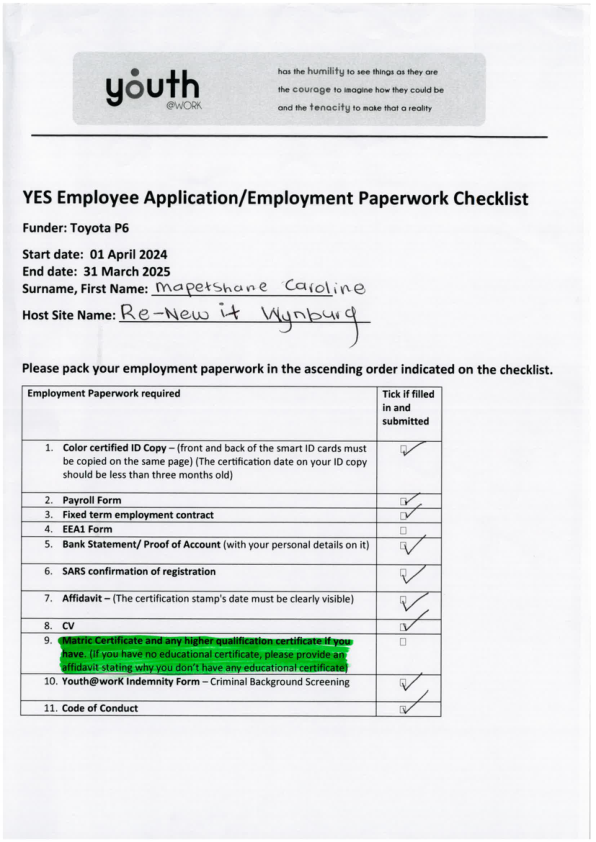 youth
@WORK
has the humility to see things as they are
the courage to imagine how they could be
and the tenacity to make that a reality
YES Employee Application/Employment Paperwork Checklist
Funder: Toyota P6
Start date: 01 April 2024
End date: 31 March 2025
Surname, First Name: Mapetshane Caroline
Host Site Name: Re-New it Wynburg
Please pack your employment paperwork in the ascending order indicated on the checklist.
Employment Paperwork required
Tick if filled
in and
submitted
1. Color certified ID Copy – (front and back of the smart ID cards must
be copied on the same page) (The certification date on your ID copy
should be less than three months old)
2. Payroll Form
3. Fixed term employment contract
4. EEA1 Form
5. Bank Statement/ Proof of Account (with your personal details on it)
6. SARS confirmation of registration
7. Affidavit – (The certification stamp's date must be clearly visible)
8. CV
9. Matric Certificate and any higher qualification certificate if you
have. (If you have no educational certificate, please provide an
affidavit stating why you don't have any educational certificate)
10. Youth@worK Indemnity Form – Criminal Background Screening
11. Code of Conduct